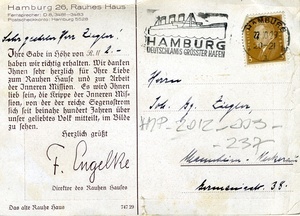 Hamburg 26, Rauhes Haus
Fernsprecher: D 8, 3481–3483
Postscheckkonto: Hamburg 5328
Sehr geehrter Herr Ziegler!
Ihre Gabe in Höhe von RM 2.–
haben wir richtig erhalten. Wir danken
Ihnen sehr herzlich für Ihre Liebe
zum Rauhen Haus und zur Arbeit
der Inneren Mission. Es wird Ihnen
lieb sein, die Krippe der Inneren Mis-
sion, von der der reiche Segensstrom
sich seit beinahe hundert Jahren über
unser geliebtes Volk mitteilt, im Bilde
zu sehen.
Herzlich grüßt
F. Engelke
Direktor des Rauhen Hauses
Das alte Rauhe Haus
747 29
HAMBURG
DEUTSCHLANDS GRÖSSTER HAFEN
HAMBURG
20-21
Herrn
Joh. Gg. Ziegler
HAP-2012-003-
-237
Mannheim-Neckarau
38.